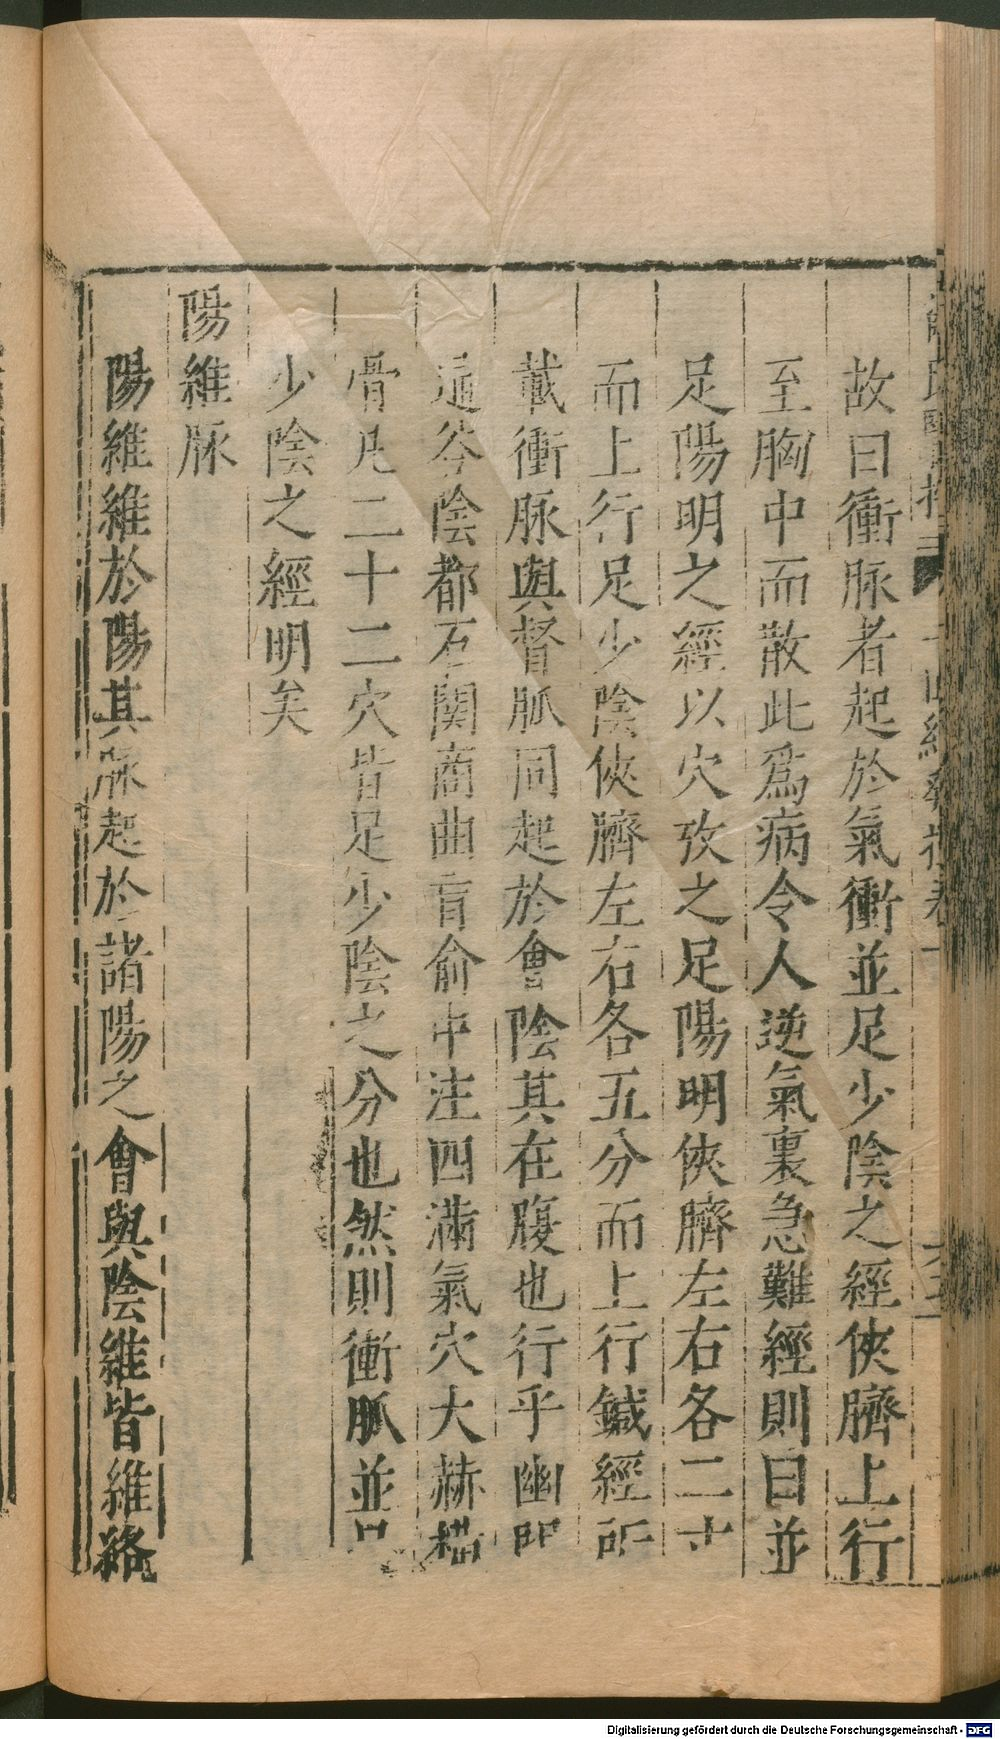 故曰衝脉者起於氣衝並足少陰之經俠臍上行
至胸中而散此為病令人逆氣裏急難經則曰並
足陽明之經以穴攷之足陽明俠臍左右各二寸
而上行足少陰俠臍左右各五分而上行鍼經所
載衝脉與督脈同起於會陰其在腹也行乎幽門
通谷陰都石關商曲肓俞中注四滿氣穴大赫橫
骨凡二十二穴皆足少陰之分也然則衝脈並足
少陰之經明矣
陽維脉
陽維維於陽其脉起於諸陽之會與陰維皆維絡
Digitalisierung gefördert durch die Deutsche Forschungsgemeinschaft - DFG